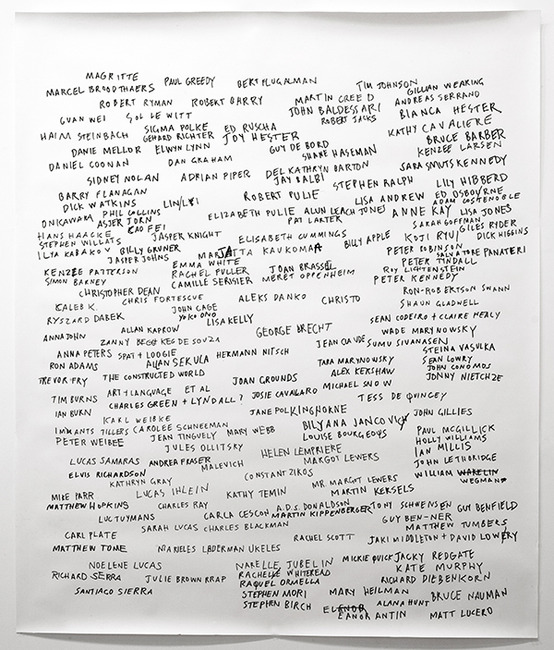 MAGRITTE PAUL GREEDY BERT FLUGALMAN TIM JOHNSON GILLIAN WEARING
MARCEL BROODTHAERS
ROBERT RYMAN ROBERT BARRY MARTIN CREED ANDREAS SERRANO
GUAN WEI SOL LE WITT JOHN BALDESSARI BIANCA HESTER
ROBERT JACKS
HAIM STEINBACH SIGMA POLKE ED RUSCHA KATHY CAVALIERE
GERHARD RICHTER JOY HESTER
DANIE MELLOR ELWYN LYNN GUY DE BORD BRUCE BARBER
DANIEL COONAN DAN GRAHAM SHANE HASEMAN KENZEE LARSEN
SIDNEY NOLAN ADRIAN PIPER DEL KATHRYN BARTON SARA SMUTS KENNEDY
JAY BALBI
BARRY FLANAGAN STEPHEN RALPH LILY HIBBERD
DICK WATKINS LIN/LYI ROBERT PULIE LISA ANDREW ED OSBOURNE
PHIL COLLINS ADAM COSTENOBLE
ONIKAWARA ASJER JORN ELIZABETH PULIE ALUN LEACH JONES ANNE KAY LISA JONES
HANS HAACKE CAO FEI PAT LARTER SARAH GOFFMAN
STEPHEN WILLATS JASPER KNIGHT ELISABETH CUMMINGS KOJI RYUI GILES RYDER
ILYA KABAKOV BILLY GRUNER BILLY APPLE DICK HIGGINS
JASPER JOHNS MARJATTA KAUKOMAA PETER ROBINSON SALVATORE PANATERI
KENZEE PATTERSON EMMA WHITE PETER TINDALL
SIMON BARNEY RACHEL FULLER JOAN BRASSIL ROY LICHTENSTEIN
CAMILLE SERGIER MERET OPPENHEIM PETER KENNEDY
CHRISTOPHER DEAN RON-ROBERTSON SWANN
KALEB K. CHRIS FORTESCUE ALEKS DANKO CHRISTO SHAUN GLADWELL
RYSZARD DABEK JOHN CAGE
YOKO ONO LISA KELLY SEAN CODEIRO + CLAIRE HEALY
ANNA JOHN ALLAN KAPROW GEORGE BRECHT WADE MARYNOWSKY
ZANNY BEGG KEG DE SOUZA JEAN CLAUDE SUMU SIVANASEN
ANNA PETERS SPAT + LOOGIE STEINA VASULKA
RON ADAMS ALLAN SEKULA HERMANN NITSCH TARA MARYNOWSKY SEAN LOWRY
TREVOR FRY THE CONSTRUCTED WORLD ALEX KERSHAW JOHN CONOMOS
JOAN GROUNDS JONNY NIETCZE
TIM BURNS ART + LANGUAGE ET AL JOSIE CAVALLARO MICHAEL SNOW
IAN BURN CHARLES GREEN + LYNDALL? TESS DE QUINCEY
KARL WEIBKE JANE POLKINGHORNE
IMMANTS TILLERS CAROLEE SCHNEEMAN BILYANA JANCOVICH JOHN GILLIES
PETER WEIBEE JEAN TINGUELY MARY WEBB LOUISE BOURGEOUS PAUL MCGILLICK
JULES OLLITSKY HELEN LEMPRIERE HOLLY WILLIAMS
LUCAS SAMARAS ANDREA FRASER MARGOT LEWERS IAN MILLIS
ELVIS RICHARDSON MALEVICH JOHN LETHBRIDGE
KATHRYN GRAY CONSTANT ZIKOS MR MARGOT LEWERS WILLIAM WARELIN
MIKE PARR LUCAS IHLEIN KATHY TEMIN MARTIN KERSELS WEGMAN
MATTHEW HOPKINS CHARLES RAY A.D.S. DONALDSON TONY SCHWENSEN GUY BENFIELD
LUC TUYMANS CARLA CESCON MARTIN KIPPENBERGER
SARAH LUCAS CHARLES BLACKMAN GUY BEN-NER
CARL PLATE MATTHEW TUMBERS
MATTHEW TOME MARIELES LADERMAN UKELES RACHEL SCOTT JAKI MIDDLETON + DAVID LOWERY
NOELENE LUCAS NARELLE JUBELIN MICKIE QUICK JACKY REDGATE
RICHARD SERRA JULIE BROWN RRAP RACHELLE WHITEREAD KATE MURPHY
RAQUEL ORMELLA RICHARD DIEBENKORN
SANTIAGO SIERRA STEPHEN MORI MARY HEILMAN BRUCE NAUMAN
STEPHEN BIRCH ELANOR ALANA HUNT
EANOR ANTIN MATT LUCERO